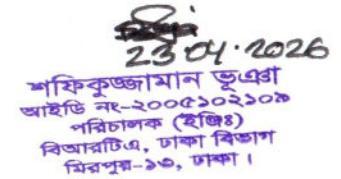 23·04·2026
শফিকুজ্জামান ভূঞা
আইডি নং-২০০৫১০২১০৯
পরিচালক (ইঞ্জিঃ)
বিআরটিএ, ঢাকা বিভাগ
মিরপুর-১৩, ঢাকা।